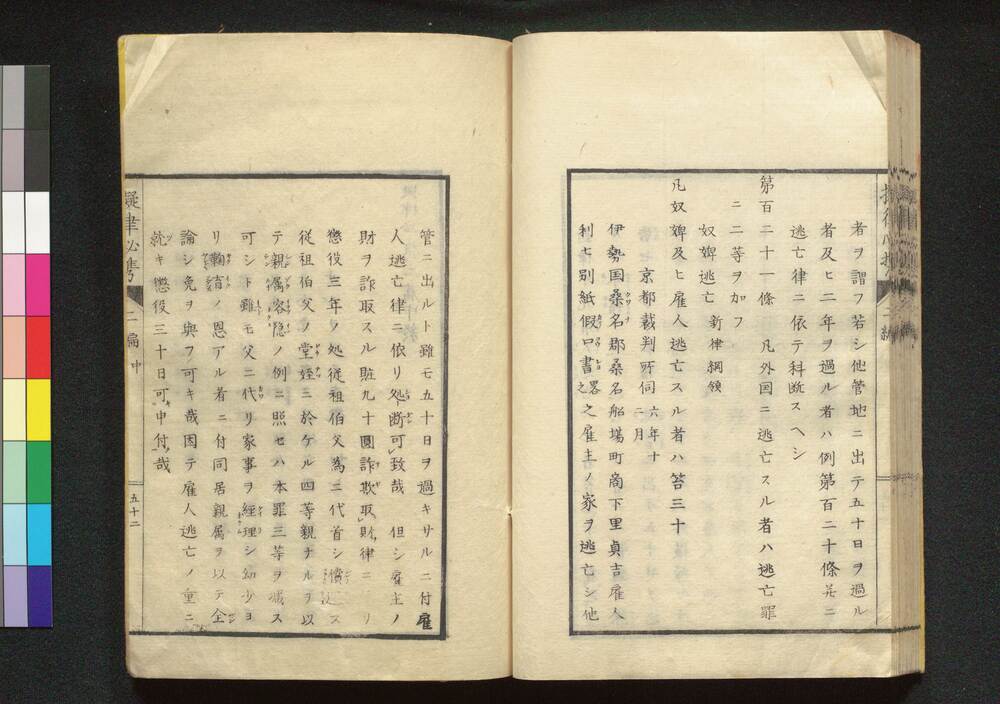 者ヲ謂フ若シ他管地ニ出テ五十日ヲ過ル
者及ヒ二年ヲ過ル者ハ例第百二十條并ニ
逃亡律ニ依テ科断スヘシ
第百二十一條 凡外国ニ逃亡スル者ハ逃亡罪
ニ二等ヲ加フ
奴婢逃亡 新律綱領
凡奴婢及ヒ雇人逃亡スル者ハ笞三十
京都裁判所伺 六年十二月
伊勢国桑名郡桑名船場町商下里貞吉雇人
利七別紙假口書畧之之雇主ノ家ヲ逃亡シ他
管ニ出ルト雖モ五十日ヲ過キサルニ付雇
人逃亡律ニ依リ処断可致哉 但シ雇主ノ
財ヲ詐取スル贓九十圓詐欺取財律ニ リ
懲役三年ノ処従祖伯父為ニ代首シ償 ス
従祖伯父ノ堂姪ニ於ケル四等親ナルヲ以
テ親属容隠ノ例ニ照セハ本罪三等ヲ減ス
可シト雖モ父ニ代リ家事ヲ經理シ幼少ヨ
リ鞠育ノ恩アル者ニ付同居親属ヲ以テ全
論シ免ヲ與フ可キ哉因テ雇人逃亡ノ重ニ
就キ懲役三十日可申付哉
擬律必携 二編中
五十二